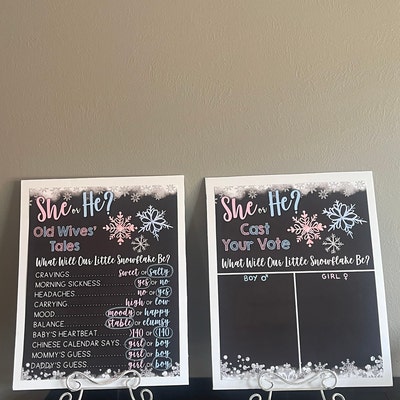 She or He?
Old Wives'
Tales
What Will Our Little Snowflake Be?
CRAVINGS sweet or salty
MORNING SICKNESS yes or no
HEADACHES no or yes
CARRYING high or low
MOOD moody or happy
BALANCE stable or clumsy
BABY'S HEARTBEAT >140 or <140
CHINESE CALENDAR SAYS girl or boy
MOMMY'S GUESS girl or boy
DADDY'S GUESS girl or boy
She or He?
Cast
Your Vote
What Will Our Little Snowflake Be?
BOY ♂ GIRL ♀